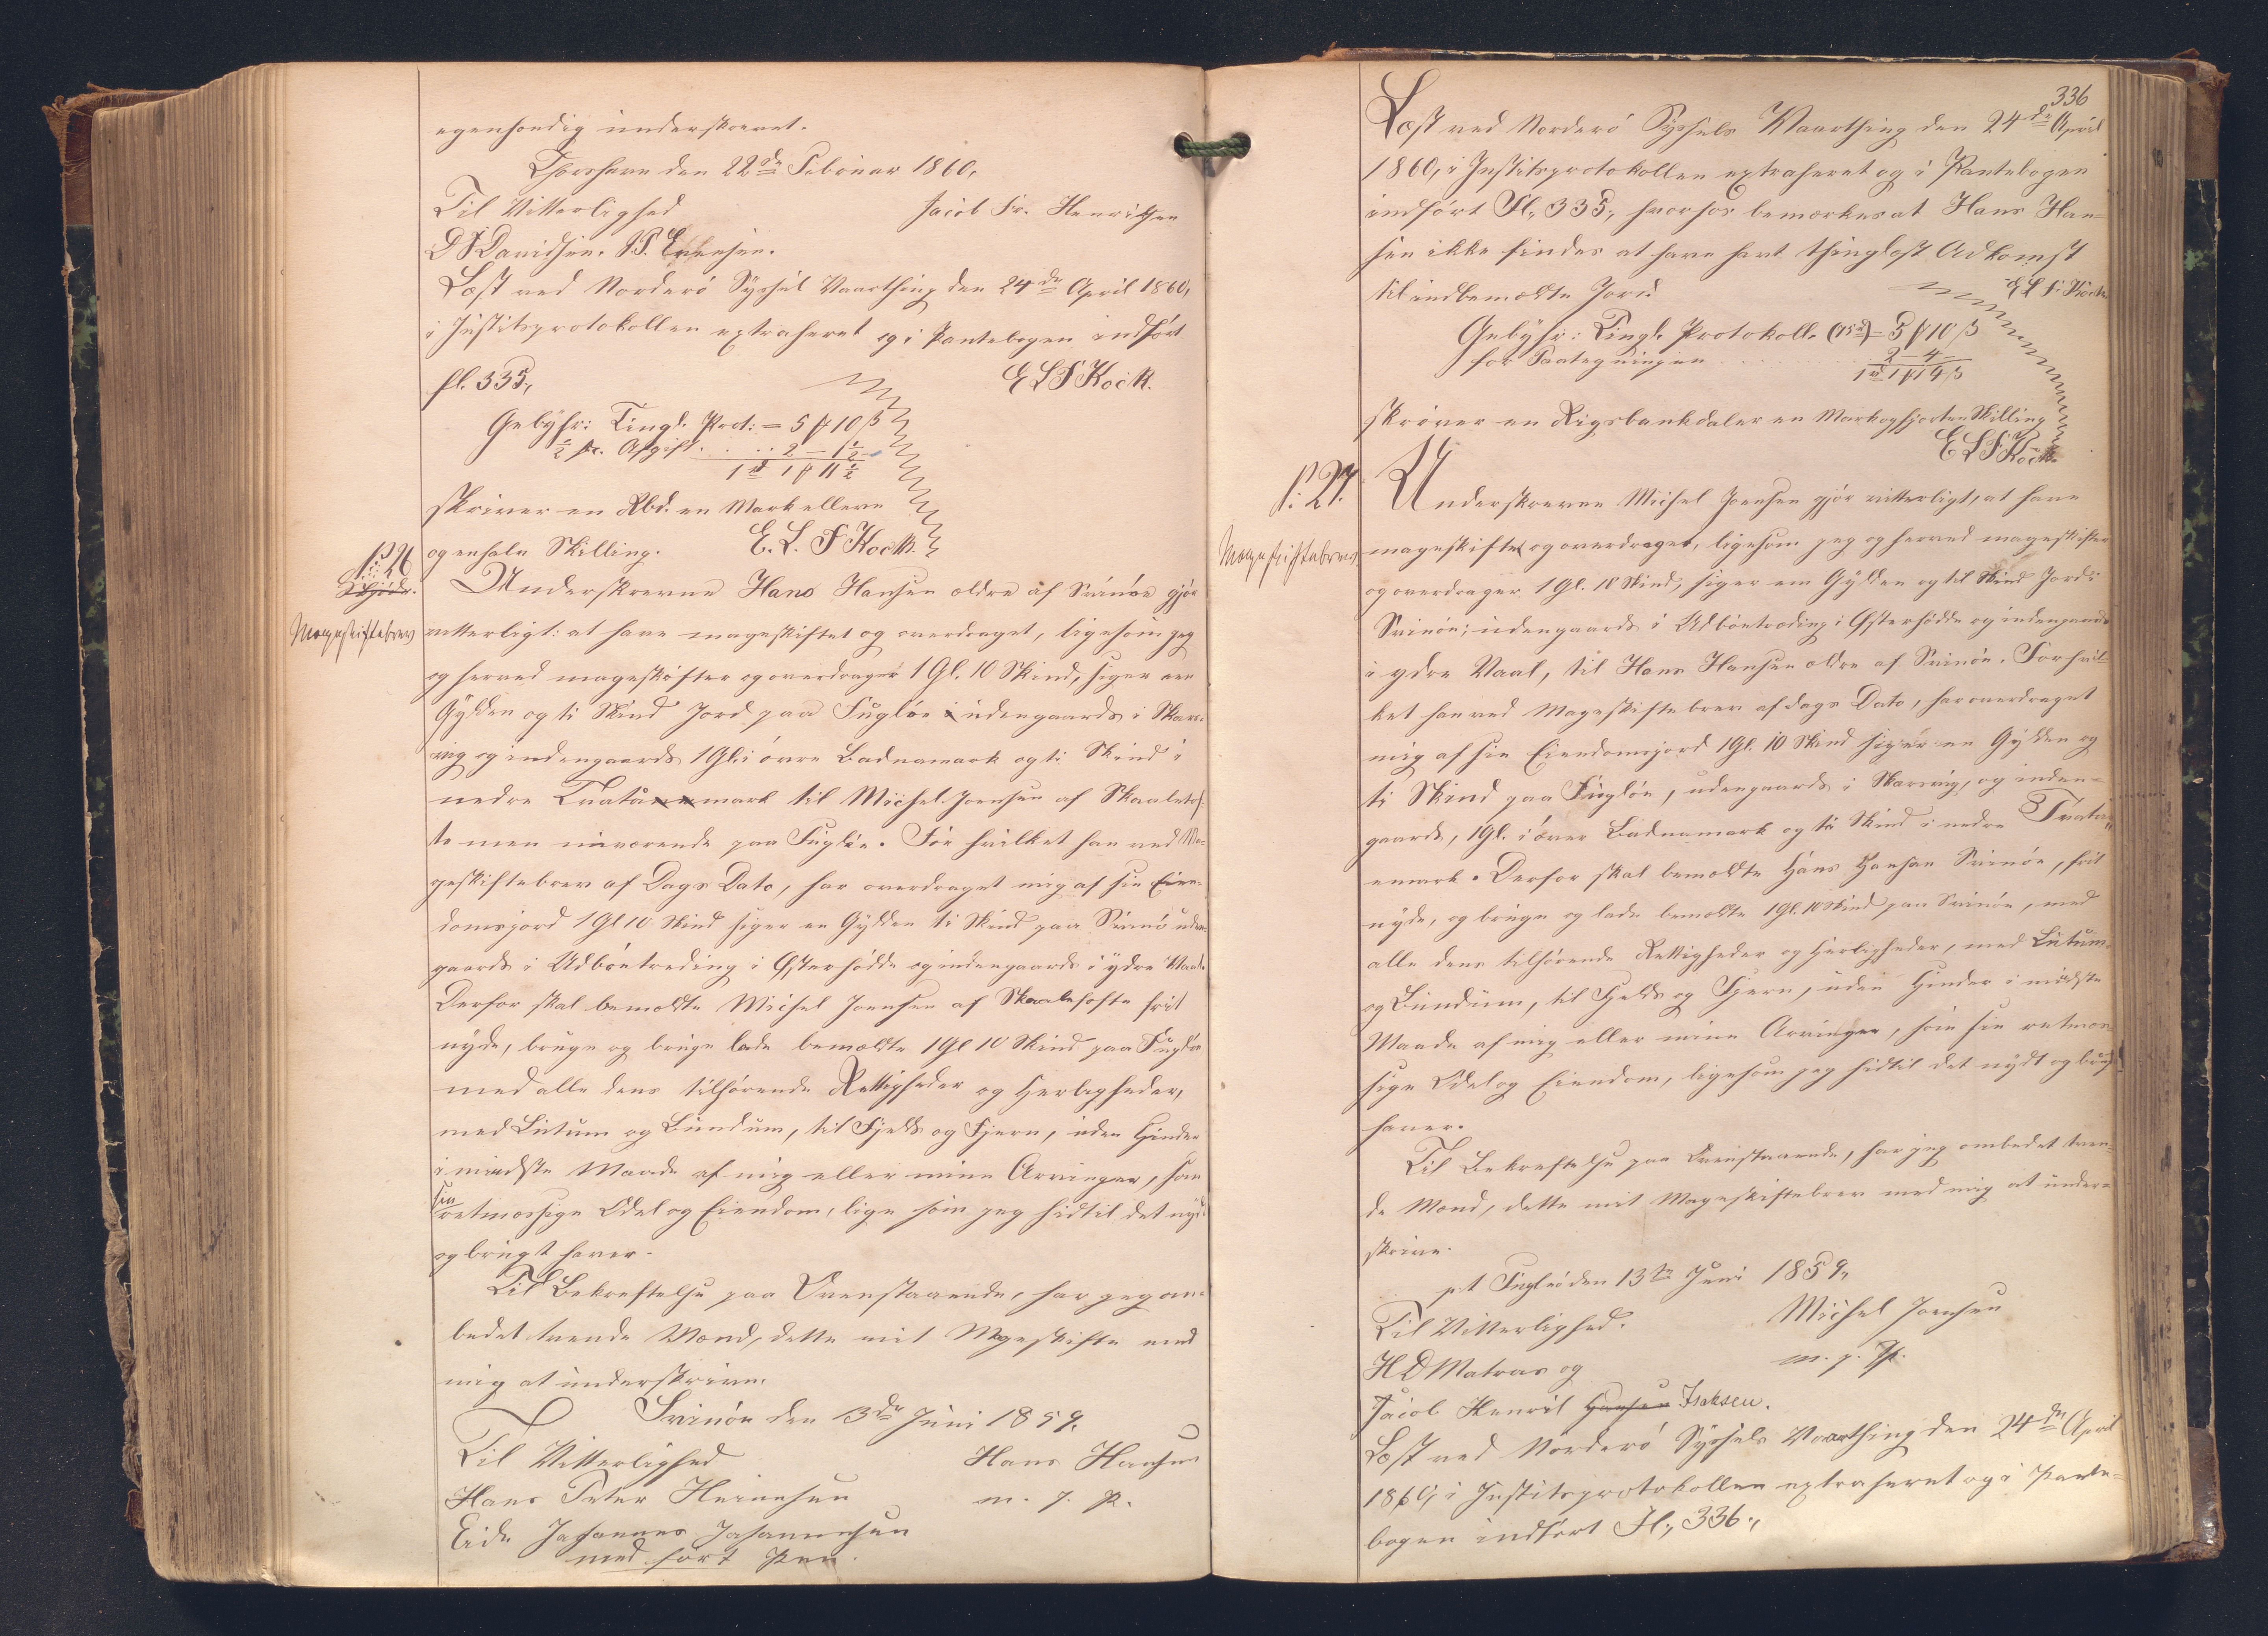 egenhændig underskrevet.
Thorshavn den 22de Februar 1860,
Til Vitterlighed Jacob Fr. Henriksen
D J Davidsen. P.
Læst ved Norderö Syssel Vaarthing den 24de April 1860,
i Justitsprotokollen extraheret og i Pantebogen indført
fl. 335, E L F Kock.
Gebyhr: Tingl. Prot: = 5 ₰ 10 β
½ pc. Afgift. . . . 2 – 1½
1 rd 1 ₰ 11½
skriver en Rbd. en Mark elleve
og enhalv Skilling. E. L. F Kock.
№ 26
Skjöde.
Mageskiftebrev
Underskrevne Hans Hansen ældre af Svinöe gjör
vitterligt: at have mageskiftet og overdraget, ligesom jeg
og herved mageskifter og overdrager 1 Gl. 10 Skind, siger een
Gylden og ti Skind Jord paa Fuglöe i udengaards i Skars-
vig og indengaards 1 Gl. i övre Badnamark og ti Skind i
nedre Tvatanemark til Michel Joensen af Skaaletof-
te men nuværende paa Fuglöe. For hvilket han ved Ma-
geskiftebrev af Dags Dato, har overdraget mig af sin Eien-
domsjord 1 Gl 10 Skind siger en Gylden ti Skind paa Svinö uden-
gaards i Udböntreding i Østerhödde og indengaards i ydre Vaal.
Derfor skal bemældte Michel Joensen af Skaaletofte frit
nyde, bruge og bruge lade bemældte 1 Gl 10 Skind paa Fuglöe
med alle dens tilhörende Rettigheder og Herligheder,
med Lutum og Bundum, til Fjelds og Fjern, uden Hinder
i mindste Maade af mig eller mine Arvinger, som
sin retmæssige Odel og Eiendom, lige som jeg hidtil det nydt
og brugt haver.
Til Bekræftelse paa Ovenstaaende, har jeg om-
bedet tvende Mænd, dette mit Mageskifte med
mig at underskrive.
Svinöe den 13de Juni 1859.
Til Vitterlighed Hans Hansen
Hans Peter Heinesen m. f. P.
Eide Johannes Johannesen
med fört Pen.
336
Læst ved Norderö Syssels Vaarthing den 24de April
1860, i Justitsprotokollen extraheret og i Pantebogen
indført Fl. 335, hvorhos bemærkes at Hans Han-
sen ikke findes at have havt thinglæst Adkomst
til indbemældte Jord.
E L F. Kock
Gebyhr: Tingl. Protokoll. = 5 ₰ 10 β
for Paategningen . . . 2 – 4
1 rd 1 ₰ 14 β
skriver en Rigsbankdaler en Mark og fjorten Skilling
E L F Kock
№ 27.
Mageskiftebrev
Underskrevne Michel Joensen gjör vitterligt, at have
mageskiftet og overdraget, ligesom jeg og herved mageskifter
og overdrager 1 Gl. 10 Skind, siger en Gylden og ti Skind Jord i
Svinöe; udengaards i Udböntreding i Østerhödde og indengaards
i ydre Vaal, til Hans Hansen ældre af Svinöe. For hvil-
ket han ved Mageskiftebrev af dags Dato, har overdraget
mig af sin Eiendomsjord 1 Gl. 10 Skind siger en Gylden og
ti Skind paa Fuglöe, udengaards i Skarsvig, og inden-
gaards, 1 Gl. i över Badnamark og ti Skind i nedre Tvatan-
emark. Derfor skal bemældte Hans Hansen Svinöe, frit
nyde, og bruge og lade bemældte 1 Gl. 10 Skind paa Svinöe, med
alle dens tilhörende Rettigheder og Herligheder, med Lutum
og Bundum, til Fjelds og Fjern, uden Hinder i mindste
Maade af mig eller mine Arvinger, som sin retmæs-
sige Odel og Eiendom, ligesom jeg hidtil det nydt og brugt
haver.
Til Bekræftelse paa Ovenstaaende, har jeg ombedet tven-
de Mænd, dette mit Mageskiftebrev med mig at under-
skrive.
p.t. Fuglö den 13de Juni 1859,
Til Vitterlighed. Michel Joensen
H D Matras og m. f. P.
Jacob Henrik Hansen Isaksen.
Læst ved Norderö Syssels Vaarthing den 24de April
1860, i Justitsprotokollen extraheret og i Pante-
bogen indført Fl. 336.,